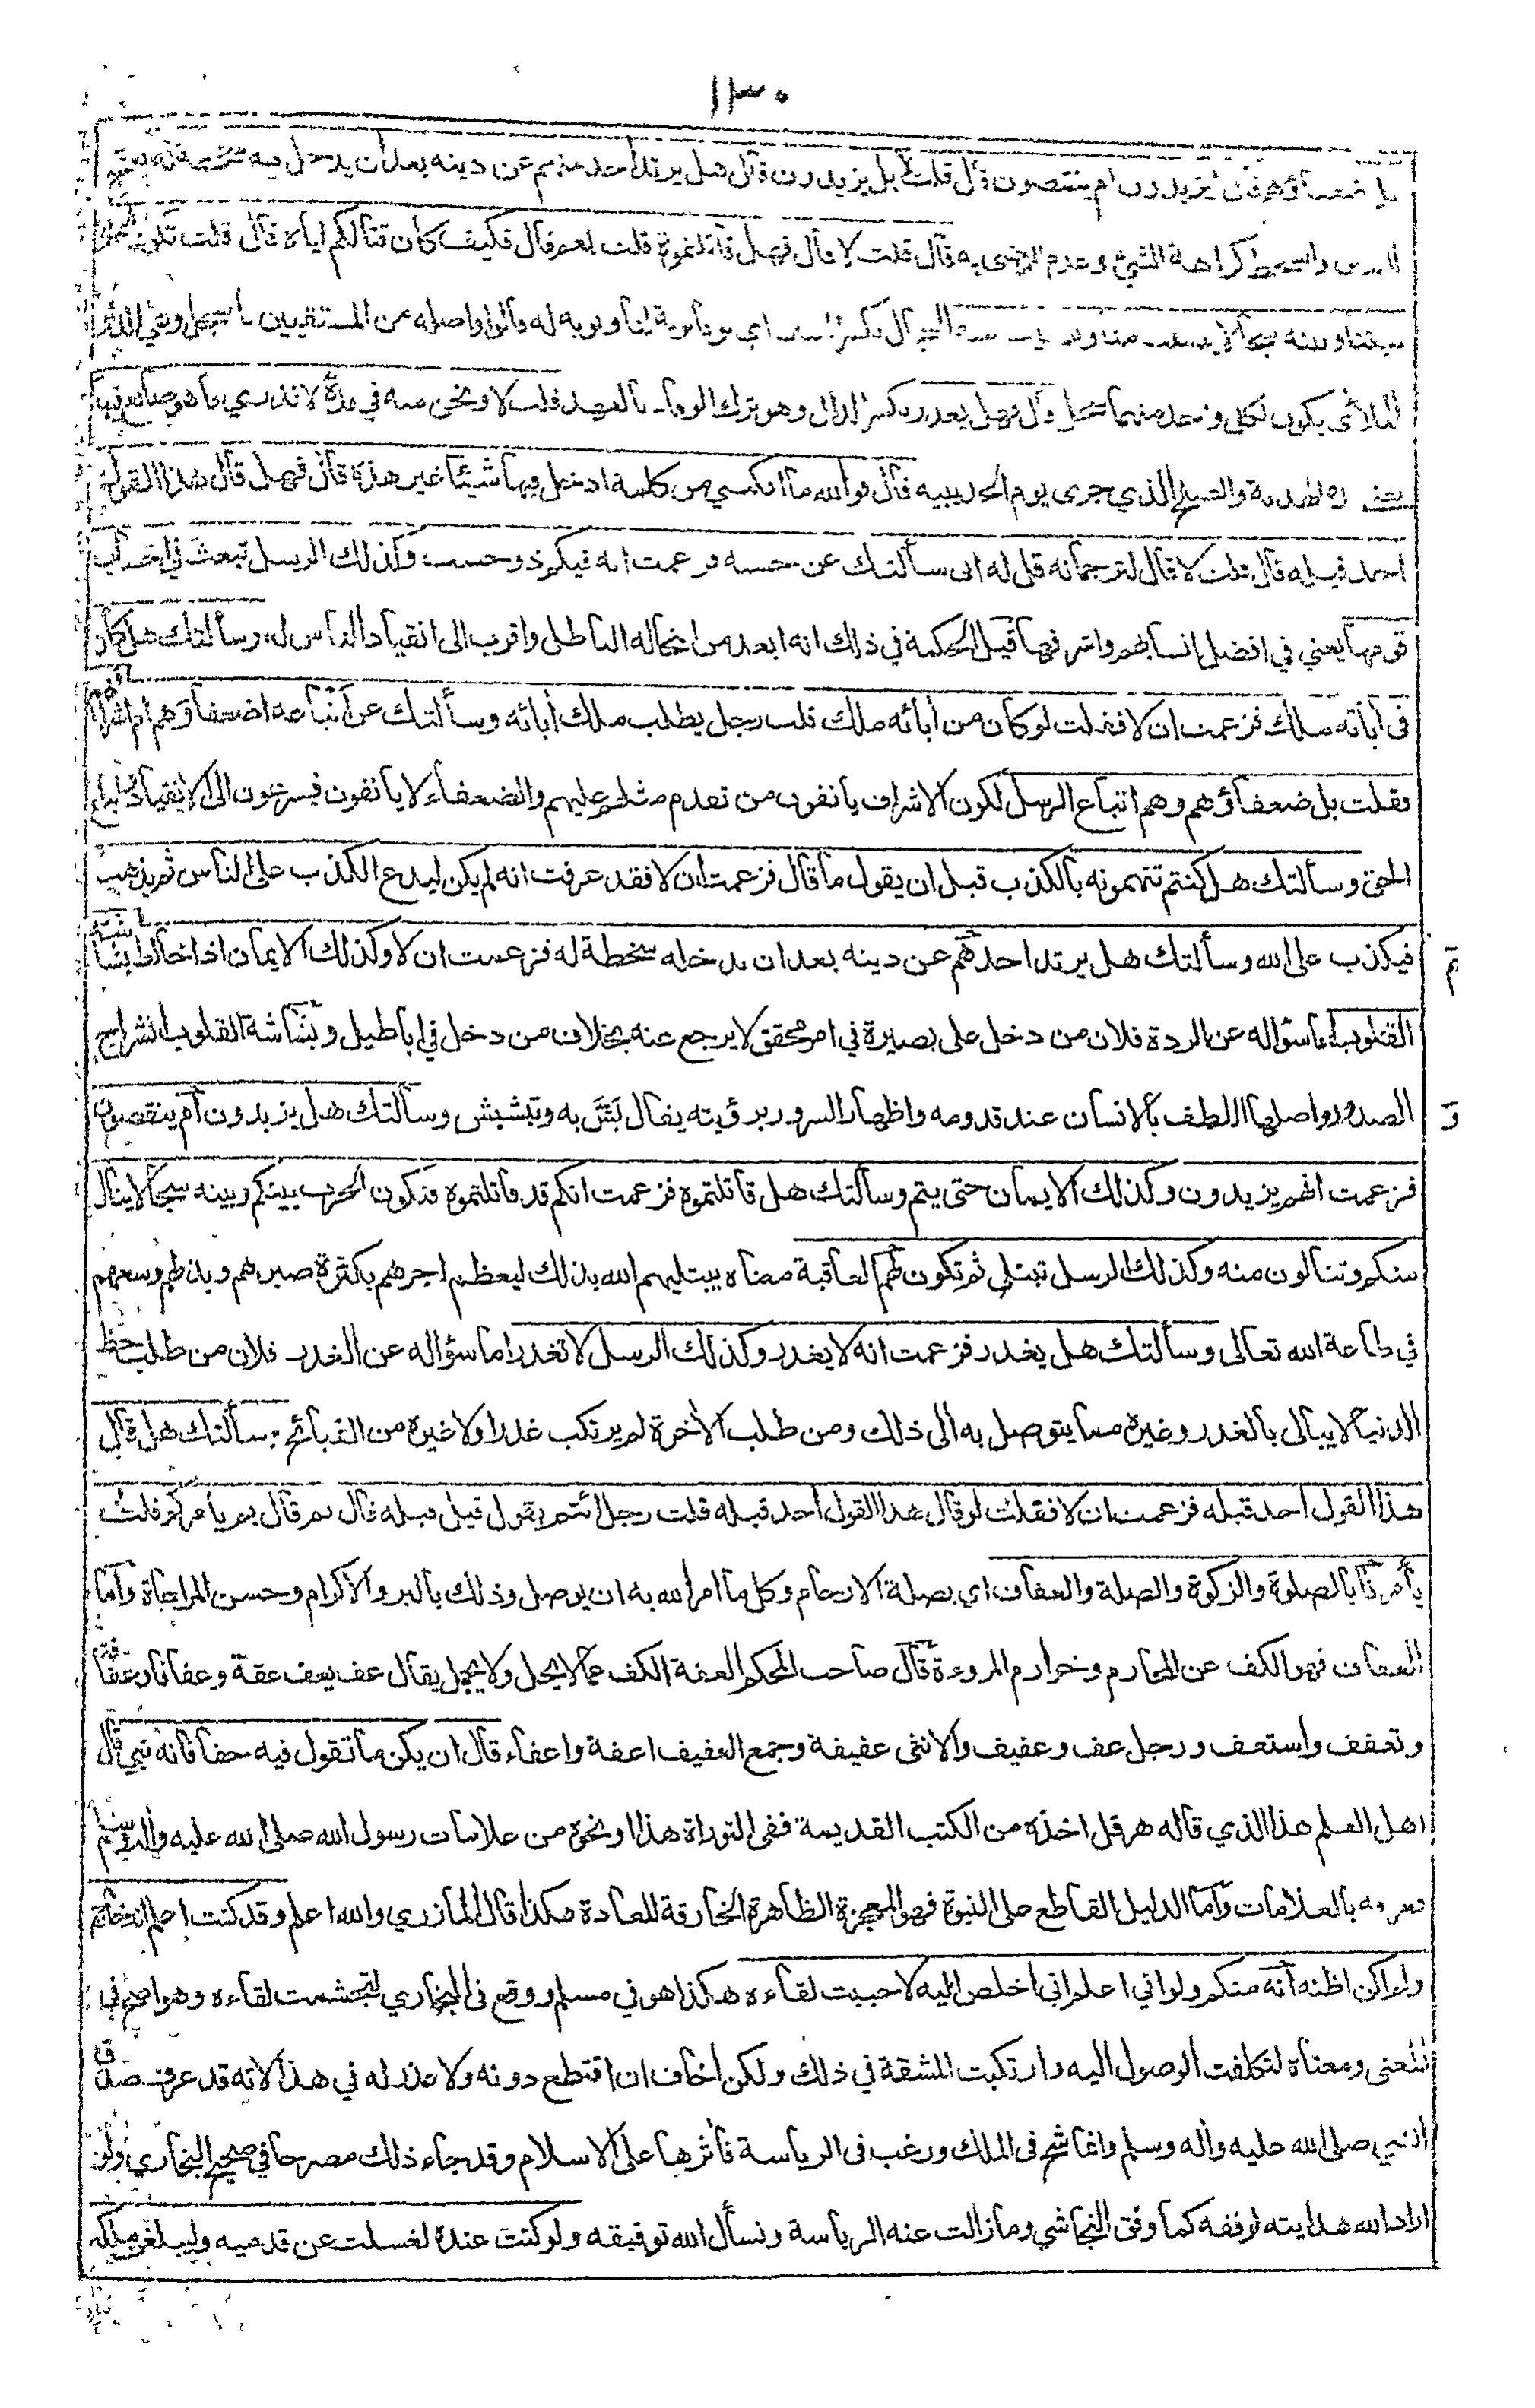 ١٣٠
بل ضعفاؤهم قال ايزيدون ام ينقصون قال قلت بل يزيدون قال هل يرتد احد منهم عن دينه بعد ان يدخل فيه سخطة له بفتح
السين والسخط كراهة الشيء وعدم الرضى به قال قلت لا قال فهل قاتلتموه قلت نعم قال فكيف كان قتالكم اياه قال قلت تكون الحرب
بيننا وبينه سجالا يصيب منا ونصيب منه السجال بكسر السين اي نوبة لنا ونوبة له قالوا واصله من المستقيين بالسجل وهي الدلو
الملأى يكون لكل واحد منهما سجل قال فهل يغدر بكسر الدال وهو ترك الوفاء بالعهد قلت لا ونحن منه في مدة لا ندري ما هو صانع فيها
يعني مدة الهدنة والصلح الذي جرى يوم الحديبيه قال فوالله ما امكنني من كلمة ادخل فيها شيئا غير هذه قال فهل قال هذا القول
احد قبله قال قلت لا قال لترجمانه قل له اني سألتك عن حسبه فزعمت انه فيكم ذو حسب وكذلك الرسل تبعث في احساب
قومها يعني في افضل انسابهم واشرفها قيل الحكمة في ذلك انه ابعد من انتحاله الباطل واقرب الى انقياد الناس له وسألتك هل كان
في أبائه ملك فزعمت ان لا فقلت لو كان من أبائه ملك قلت رجل يطلب ملك أبائه وسألتك عن أتباعه اضعفاؤهم ام اشرافهم
فقلت بل ضعفاؤهم وهم اتباع الرسل لكون الاشراف يأنفون من تقدم مثلهم عليهم والضعفاء لا يأنفون فيسرعون الى الانقياد واتباع
الحق وسألتك هل كنتم تتهمونه بالكذب قبل ان يقول ما قال فزعمت ان لا فقد عرفت انه لم يكن ليدع الكذب على الناس ثم يذهب
فيكذب على الله وسألتك هل يرتد احد منهم عن دينه بعد ان يدخله سخطة له فزعمت ان لا وكذلك الايمان اذا خالط بشاشة
القلوب اما سؤاله عن الردة فلان من دخل على بصيرة في امر محقق لا يرجع عنه بخلاف من دخل في اباطيل وبشاشة القلوب انشراح
الصدور واصلها اللطف بالانسان عند قدومه واظهار السرور برؤيته يقال بَشَّ به وتبشبش وسألتك هل يزيدون أم ينقصون
فزعمت انهم يزيدون وكذلك الايمان حتى يتم وسألتك هل قاتلتموه فزعمت انكم قد قاتلتموه فتكون الحرب بينكم وبينه سجالا ينال
منكم وتنالون منه وكذلك الرسل تبتلى ثم تكون لهم العاقبة معناه يبتليهم الله بذلك ليعظم اجرهم بكثرة صبرهم وبذلهم وسعهم
في طاعة الله تعالى وسألتك هل يغدر فزعمت انه لا يغدر وكذلك الرسل لا تغدر اما سؤاله عن الغدر فلان من طلب حظ
الدنيا لا يبالى بالغدر وغيره مما يتوصل به الى ذلك ومن طلب الأخرة لم يرتكب غدرا ولا غيره من القبائح وسألتك هل قال
هذا القول احد قبله فزعمت ان لا فقلت لو قال هذا القول احد قبله قلت رجل ائتم بقول قيل قبله قال ثم قال بم يأمركم قلت
يأمرنا بالصلوة والزكوة والصلة والعفاف اي بصلة الارحام وكل ما امر الله به ان يوصل وذلك بالبر والاكرام وحسن المراعاة وأما
العفاف فهو الكف عن المحارم وخوارم المروءة قال صاحب المحكم العفة الكف عما لا يحل ولا يجمل يقال عف يعف عفة وعفافا وعفافة
وتعفف واستعف ورجل عف وعفيف والانثى عفيفة وجمع العفيف اعفة واعفاء قال ان يكن ما تقول فيه حقا فانه نبي قال
اهل العلم هذا الذي قاله هرقل اخذه من الكتب القديمة ففى التوراة هذا او نحوه من علامات رسول الله صلى الله عليه واله وسلم
فعرفه بالعلامات وأما الدليل القاطع على النبوة فهو المعجزة الظاهرة الخارقة للعادة هكذا قال المازري والله اعلم وقد كنت اعلم انه خارج
ولم اكن اظنه أنه منكم ولو اني اعلم اني اخلص اليه لاحببت لقاءه هكذا هو في مسلم ووقع فى البخاري لتجشمت لقاءه وهو اصح فى
المعنى ومعناه لتكلفت الوصول اليه وارتكبت المشقة في ذلك ولكن اخاف ان اقتطع دونه ولا عذر له في هذا لانه قد عرف صدق
النبي صلى الله عليه وأله وسلم وانما شح فى الملك ورغب فى الرياسة فأثرها على الاسلام وقد جاء ذلك مصرحا في صحيح البخاري ولو
اراد الله هدايته لوفقه كما وفق النجاشي وما زالت عنه الرياسة ونسأل الله توفيقه ولو كنت عنده لغسلت عن قدميه وليبلغن ملكه